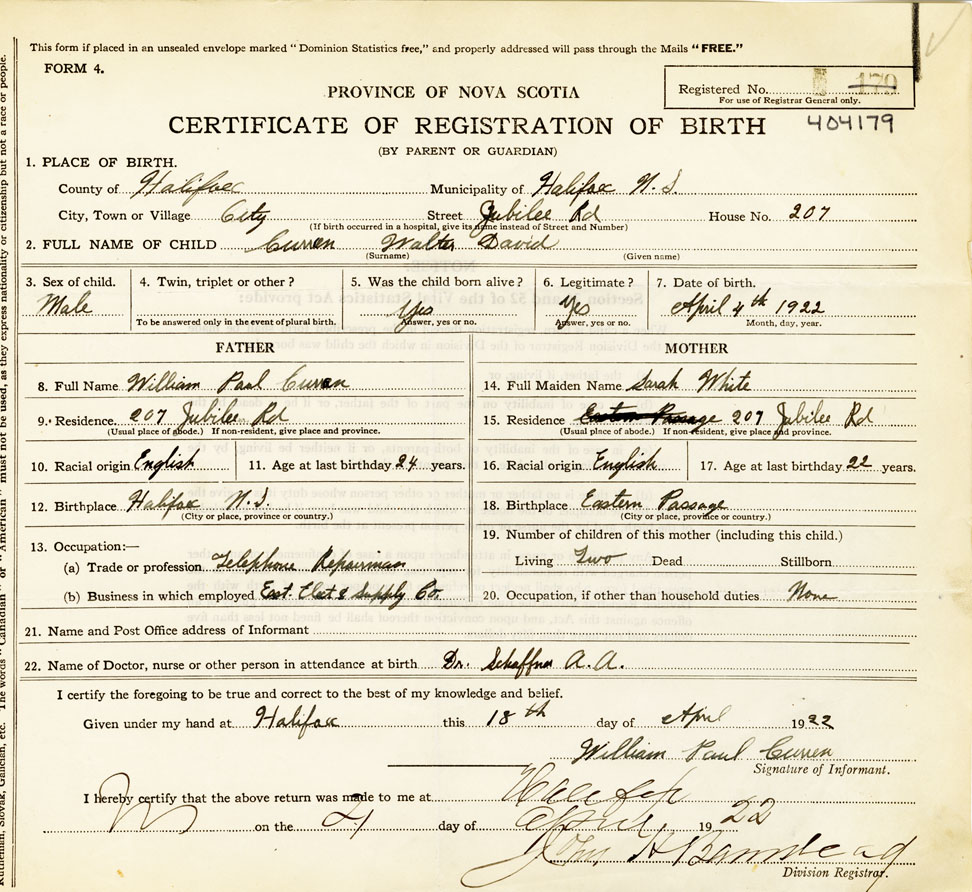 This form if placed in an unsealed envelope marked "Dominion Statistics free," and properly addressed will pass through the Mails "FREE."
FORM 4.
Registered No. 170
For use of Registrar General only.
PROVINCE OF NOVA SCOTIA
CERTIFICATE OF REGISTRATION OF BIRTH 404179
(BY PARENT OR GUARDIAN)
1. PLACE OF BIRTH.
County of Halifax Municipality of Halifax N.S.
City, Town or Village City Street Jubilee Rd House No. 207
(If birth occurred in a hospital, give its name instead of Street and Number)
2. FULL NAME OF CHILD Curren Walter David
(Surname) (Given name)
3. Sex of child. 4. Twin, triplet or other? 5. Was the child born alive? 6. Legitimate? 7. Date of birth.
Male Yes Yes April 4th 1922
To be answered only in the event of plural birth. Answer, yes or no. Answer, yes or no. Month, day, year.
FATHER MOTHER
8. Full Name William Paul Curren 14. Full Maiden Name Sarah White
9. Residence 207 Jubilee Rd 15. Residence Eastern Passage 207 Jubilee Rd
(Usual place of abode.) If non-resident, give place and province. (Usual place of abode.) If non-resident, give place and province.
10. Racial origin English 11. Age at last birthday 24 years. 16. Racial origin English 17. Age at last birthday 22 years.
12. Birthplace Halifax N.S. 18. Birthplace Eastern Passage
(City or place, province or country.) (City or place, province or country.)
13. Occupation:— 19. Number of children of this mother (including this child.)
(a) Trade or profession Telephone Repairman Living Two Dead Stillborn
(b) Business in which employed East. Elect & Supply Co. 20. Occupation, if other than household duties None
21. Name and Post Office address of Informant
22. Name of Doctor, nurse or other person in attendance at birth Dr. Schaffner A.A.
I certify the foregoing to be true and correct to the best of my knowledge and belief.
Given under my hand at Halifax this 18th day of April 1922
William Paul Curren
Signature of Informant.
I hereby certify that the above return was made to me at Halifax
on the day of April, 1922
John H Barnstead
Division Registrar.
Ruthenian, Slovak, Galician, etc. The words "Canadian" or "American" must not be used, as they express nationality or citizenship but not a race or people.